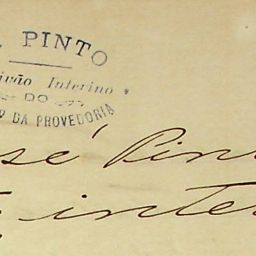 . PINTO
ivão Interino *
DO
O DA PROVEDORIA
sé Pin
inte